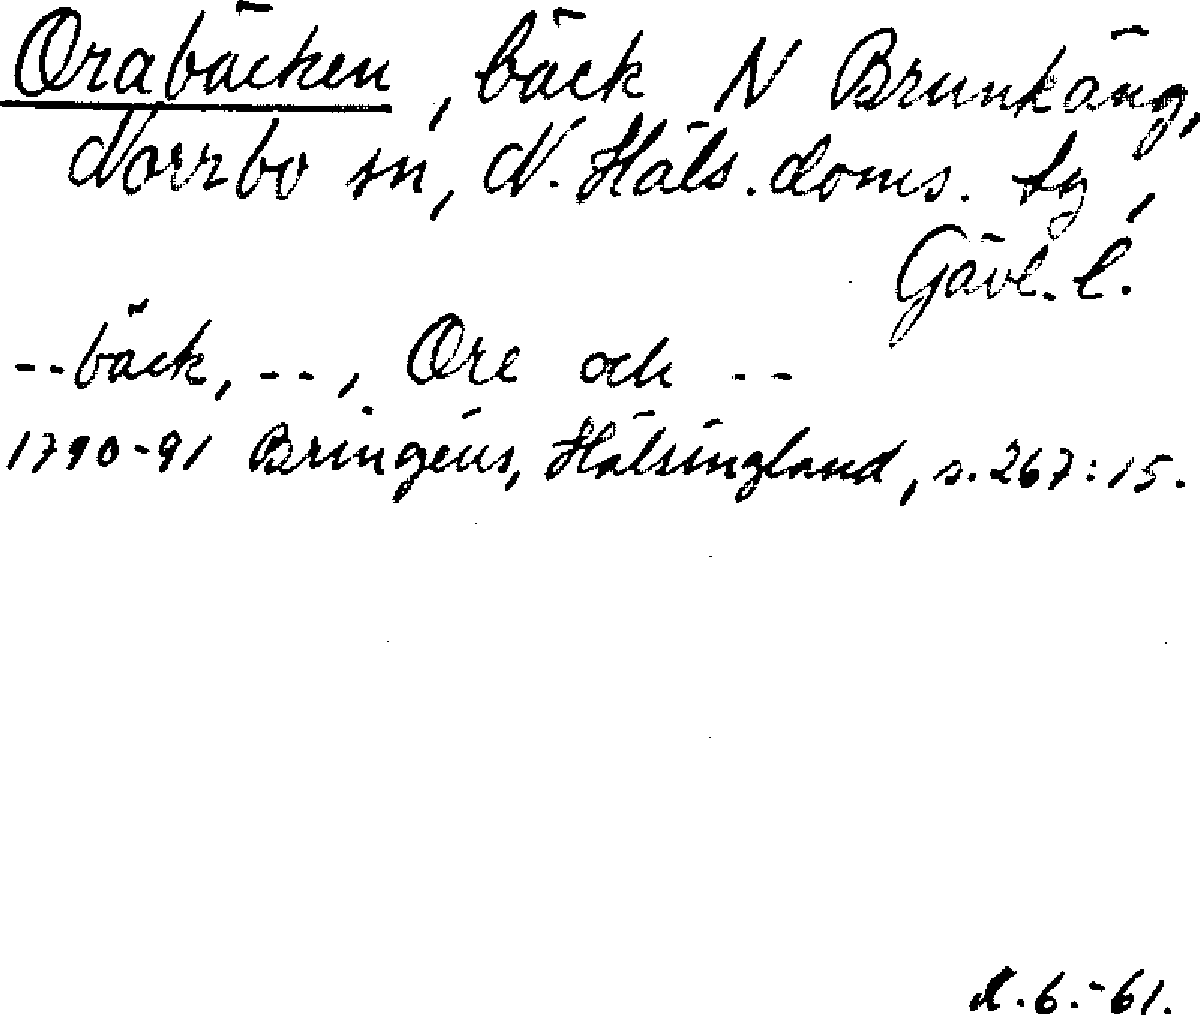 Orabäcken, bäck N Brunkäng,
Norrbo sn, N. Häls. doms. tg,
Gävl. l.
--bäck, --, Ore och --
1790-91 Bringéus, Hälsingland, s. 267:15.
6.-61.